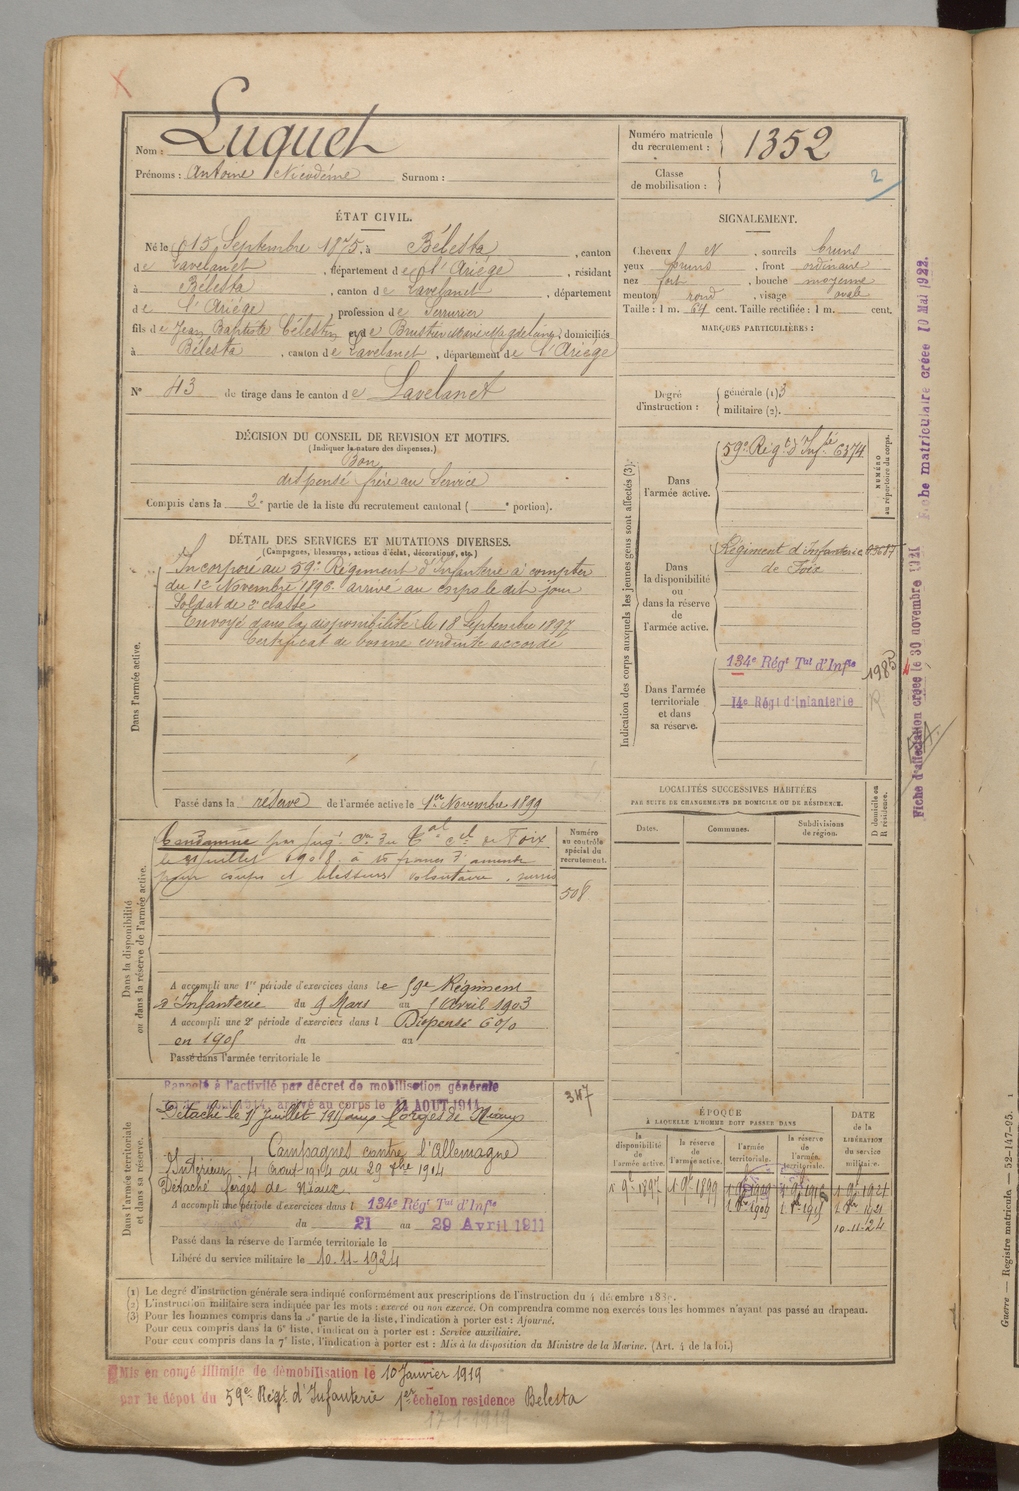 Nom : Luquet
Prénoms : Antoine Nicodème Surnom :
Numéro matricule du recrutement : 1352
Classe de mobilisation :
2
ÉTAT CIVIL.
Né le 15 Septembre 1875, à Bélesta, canton
de Lavelanet, département de l'Ariège, résidant
à Bélesta, canton de Lavelanet, département
de l'Ariège, profession de Serrurier
fils de Jean Baptiste Célestin et de Marie Magdelaine, domiciliés
à Bélesta, canton de Lavelanet, département de l'Ariège
N° 43 de tirage dans le canton de Lavelanet
SIGNALEMENT.
Cheveux N, sourcils bruns
yeux bruns, front ordinaire
nez fort, bouche moyenne
menton rond, visage ovale
Taille : 1 m. 64 cent. Taille rectifiée : 1 m. cent.
MARQUES PARTICULIÈRES :
Degré d'instruction : générale (1) 3
militaire (2).
DÉCISION DU CONSEIL DE REVISION ET MOTIFS.
(Indiquer la nature des dispenses.)
Bon
dispensé frère au Service
Compris dans la 2e partie de la liste du recrutement cantonal ( e portion).
DÉTAIL DES SERVICES ET MUTATIONS DIVERSES.
(Campagnes, blessures, actions d'éclat, décorations, etc.)
Dans l'armée active.
Incorporé au 59e Régiment d'Infanterie à compter
du 12 Novembre 1896 arrivé au corps le dit jour
Soldat de 2e classe
Envoyé dans la disponibilité le 18 Septembre 1897
Certificat de bonne conduite accordé
Passé dans la réserve de l'armée active le 1er Novembre 1899
Indication des corps auxquels les jeunes gens sont affectés (3).
NUMÉRO au répertoire du corps.
Dans l'armée active.
59e Régt d'Infie 6374
Dans la disponibilité ou dans la réserve de l'armée active.
Régiment d'Infanterie
de Foix
Dans l'armée territoriale et dans sa réserve.
134e Régt Tal d'Infie 1985
14e Régt d'Infanterie
Fiche d'affectation créée le 30 novembre 1921
Fiche matriculaire créée 10 Mai 1922.
LOCALITÉS SUCCESSIVES HABITÉES
PAR SUITE DE CHANGEMENTS DE DOMICILE OU DE RÉSIDENCE.
Dates. Communes. Subdivisions de région. D domicile ou R résidence.
Dans la disponibilité ou dans la réserve de l'armée active.
Condamné par jugt du Cal de Foix
le juillet 1908 à 16 francs d'amende
pour coups et blessures volontaires. sursis
Numéro au contrôle spécial de recrutement.
508
A accompli une 1re période d'exercices dans le 59e Régiment
d'Infanterie du 9 Mars au 5 Avril 1903
A accompli une 2e période d'exercices dans l Dispensé 6%
en 1905 du au
Passé dans l'armée territoriale le
Dans l'armée territoriale et dans sa réserve.
Rappelé à l'activité par décret de mobilisation générale
arrivé au corps le 11 AOUT 1914
Détaché le Juillet 1915 aux Forges de Niaux
347
Campagnes contre l'Allemagne
Intérieur 4 août 1914 au 29
Détaché forges de Niaux
A accompli une période d'exercices dans l 134e Régt Tal d'Infie
du 21 au 29 Avril 1911
Passé dans la réserve de l'armée territoriale le
Libéré du service militaire le 10-11-1924
ÉPOQUE
À LAQUELLE L'HOMME DOIT PASSER DANS
la disponibilité de l'armée active. la réserve de l'armée active. l'armée territoriale. la réserve de l'armée territoriale.
DATE de la LIBÉRATION du service militaire.
1 9bre 1897 1 9bre 1899
10-11-24
(1) Le degré d'instruction générale sera indiqué conformément aux prescriptions de l'instruction du 4 décembre 1889.
(2) L'instruction militaire sera indiquée par les mots : exercé ou non exercé. On comprendra comme non exercés tous les hommes n'ayant pas passé au drapeau.
(3) Pour les hommes compris dans la 5e partie de la liste, l'indication à porter est : Ajourné.
Pour ceux compris dans la 6e liste, l'indication à porter est : Service auxiliaire.
Pour ceux compris dans la 7e liste, l'indication à porter est : Mis à la disposition du Ministre de la Marine. (Art. 4 de la loi.)
Mis en congé illimité de démobilisation le 10 Janvier 1919
par le dépôt du 59e Régt d'Infanterie 1er échelon residence Belesta
17-1-1919
Guerre — Registre matricule. — 52-147-95.